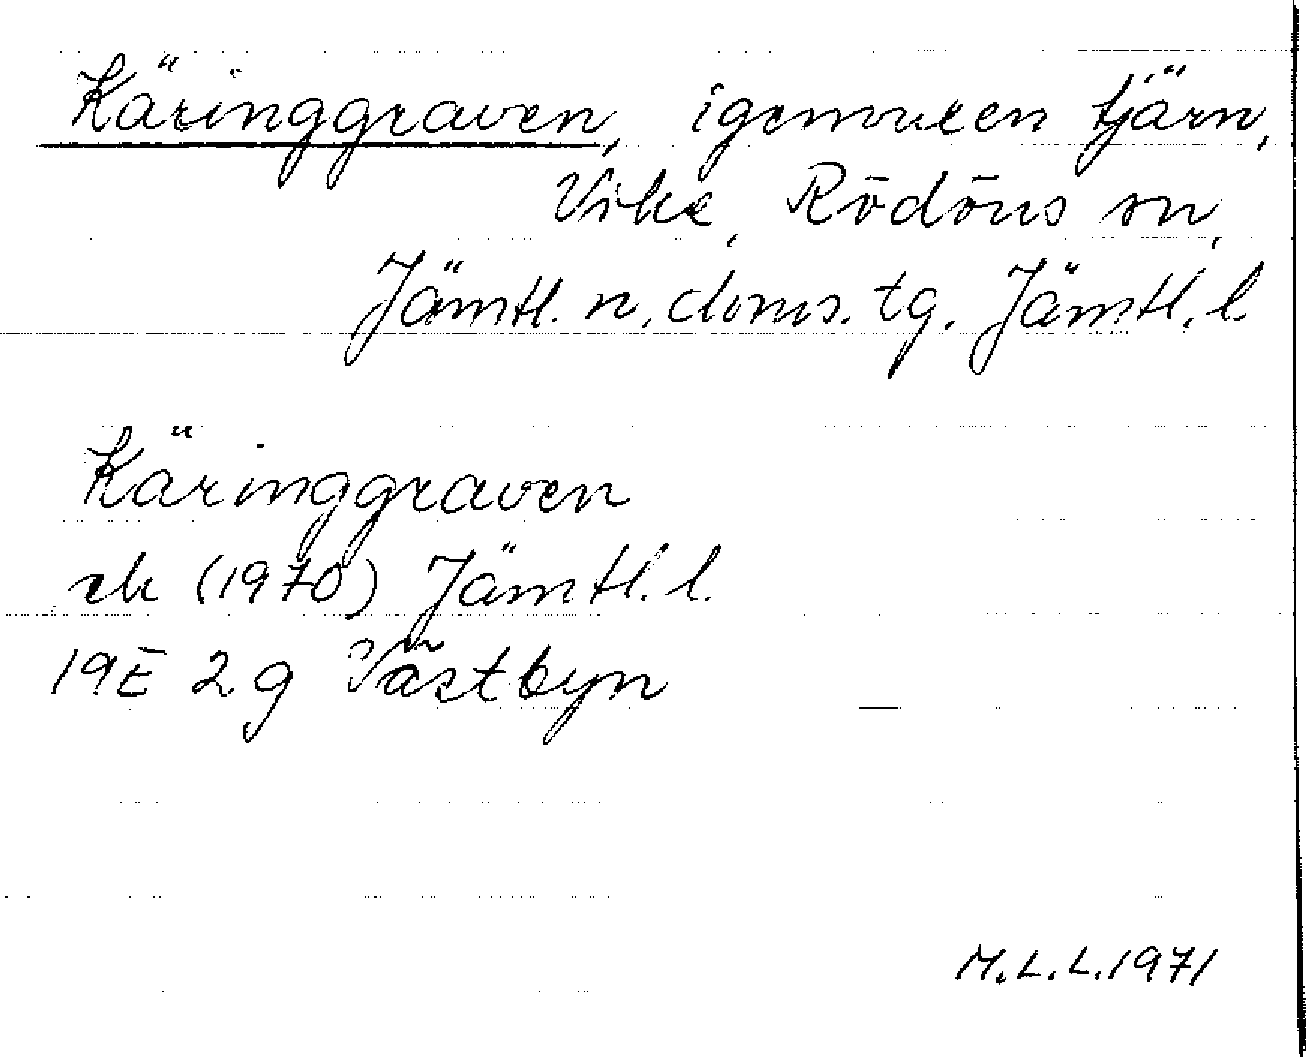 Käringgraven, igenvuxen tjärn,
Vike, Rödöns sn,
Jämtl. n. doms. tg. Jämtl. l
Käringgraven
ek (1970) Jämtl. l.
19E 2g Västbyn
M.L.L. 1971